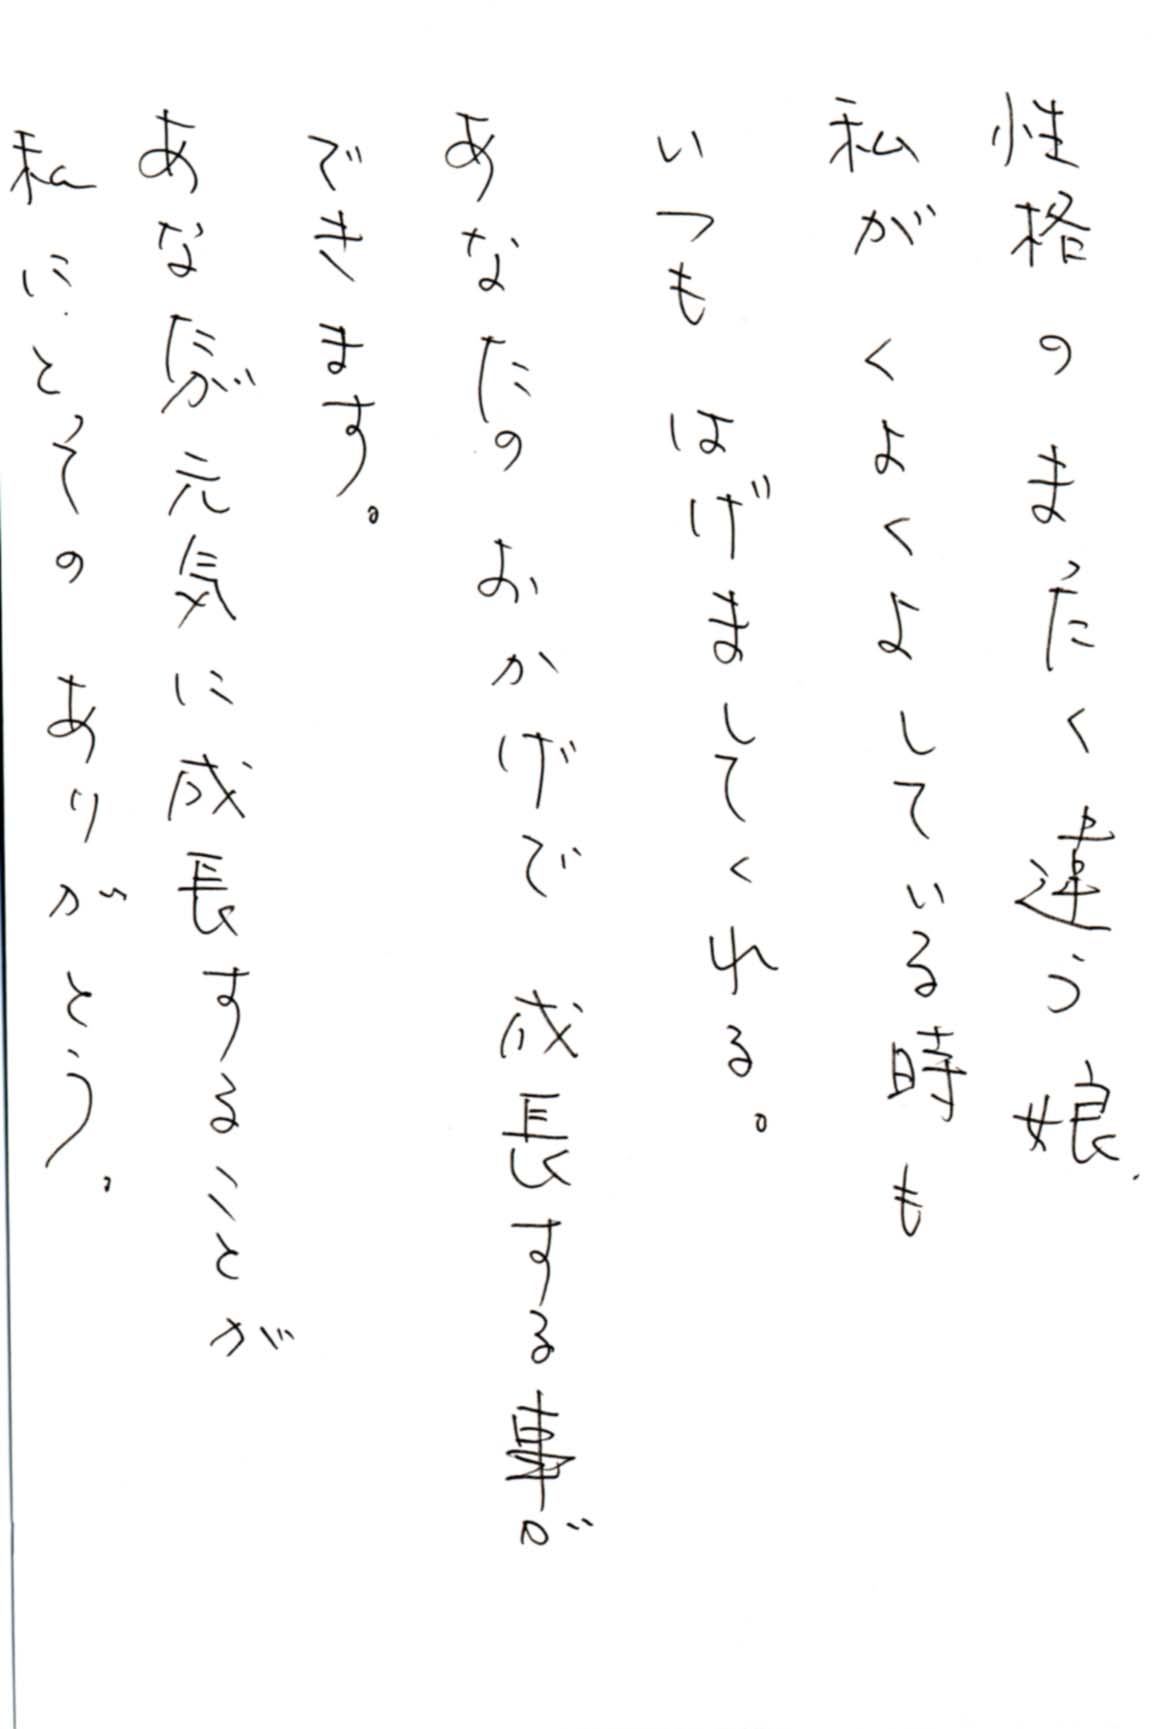 性格のまったく違う娘.
私がくよくよしている時も
いつもはげましてくれる。
あなたのおかげで成長する事が
できます。
あなたが元気に成長することが
私にとっての ありがとう。